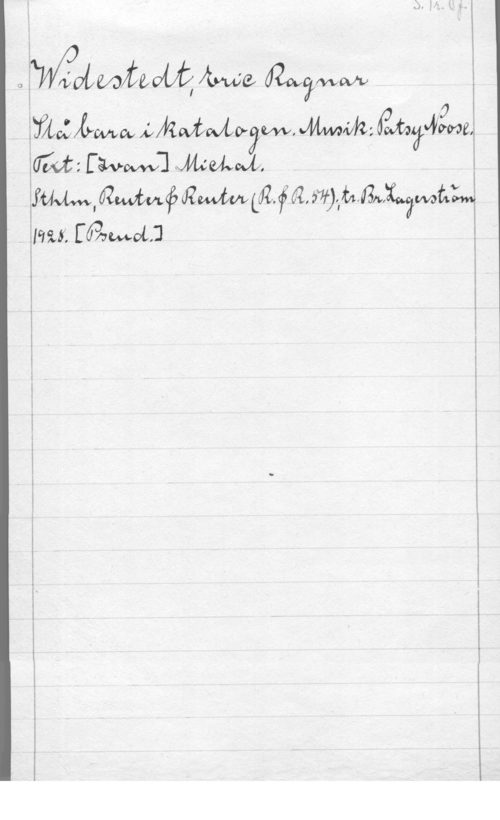 S. Tr. Of.
Widestedt, Eric Ragnar
Slå bara i katalogen. Musik: Patsy Noose.
Text: [Ivan] Michal.
Sthlm, Reuter & Reuter (R. & R. 54), tr. Br. Lagerström
1928. [Pseud.]